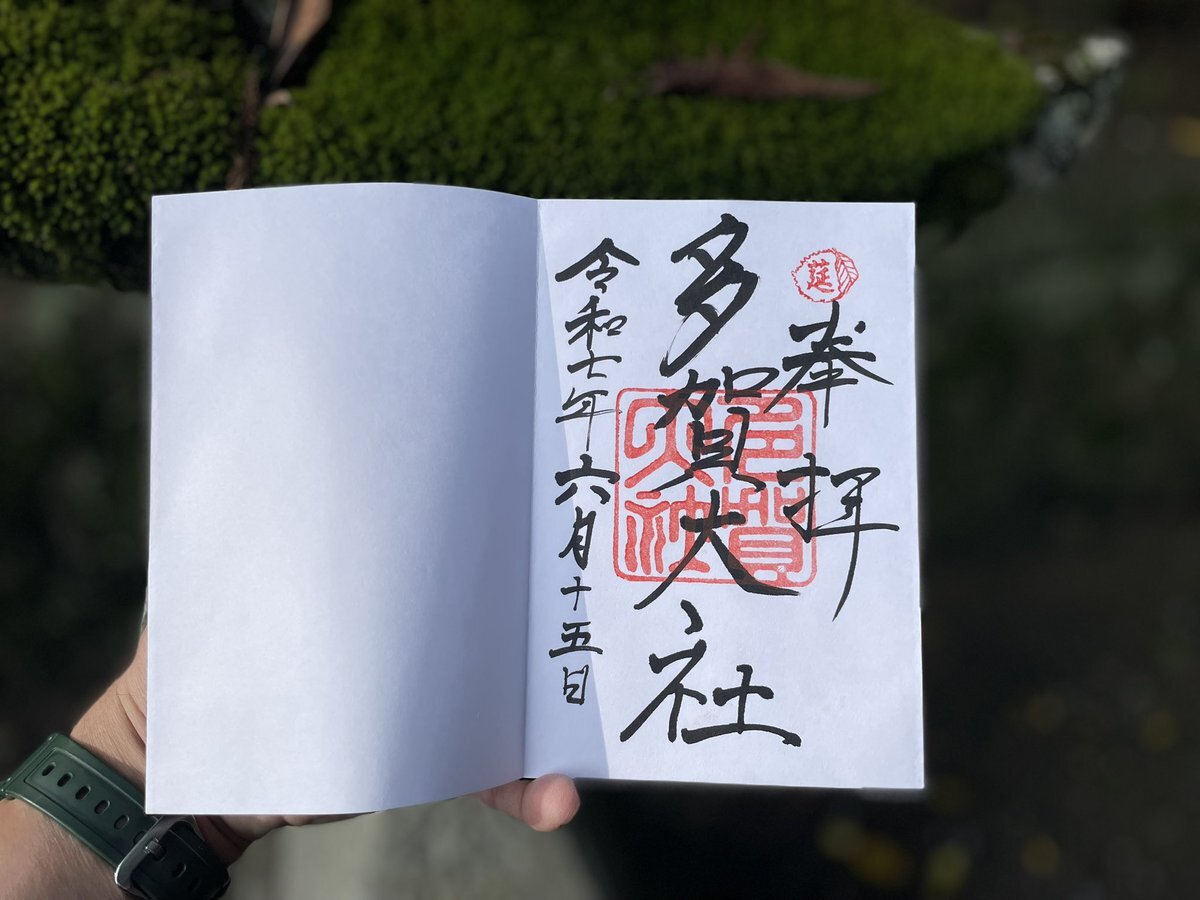 延
奉拝
多賀大社
多賀大社
令和七年六月十五日